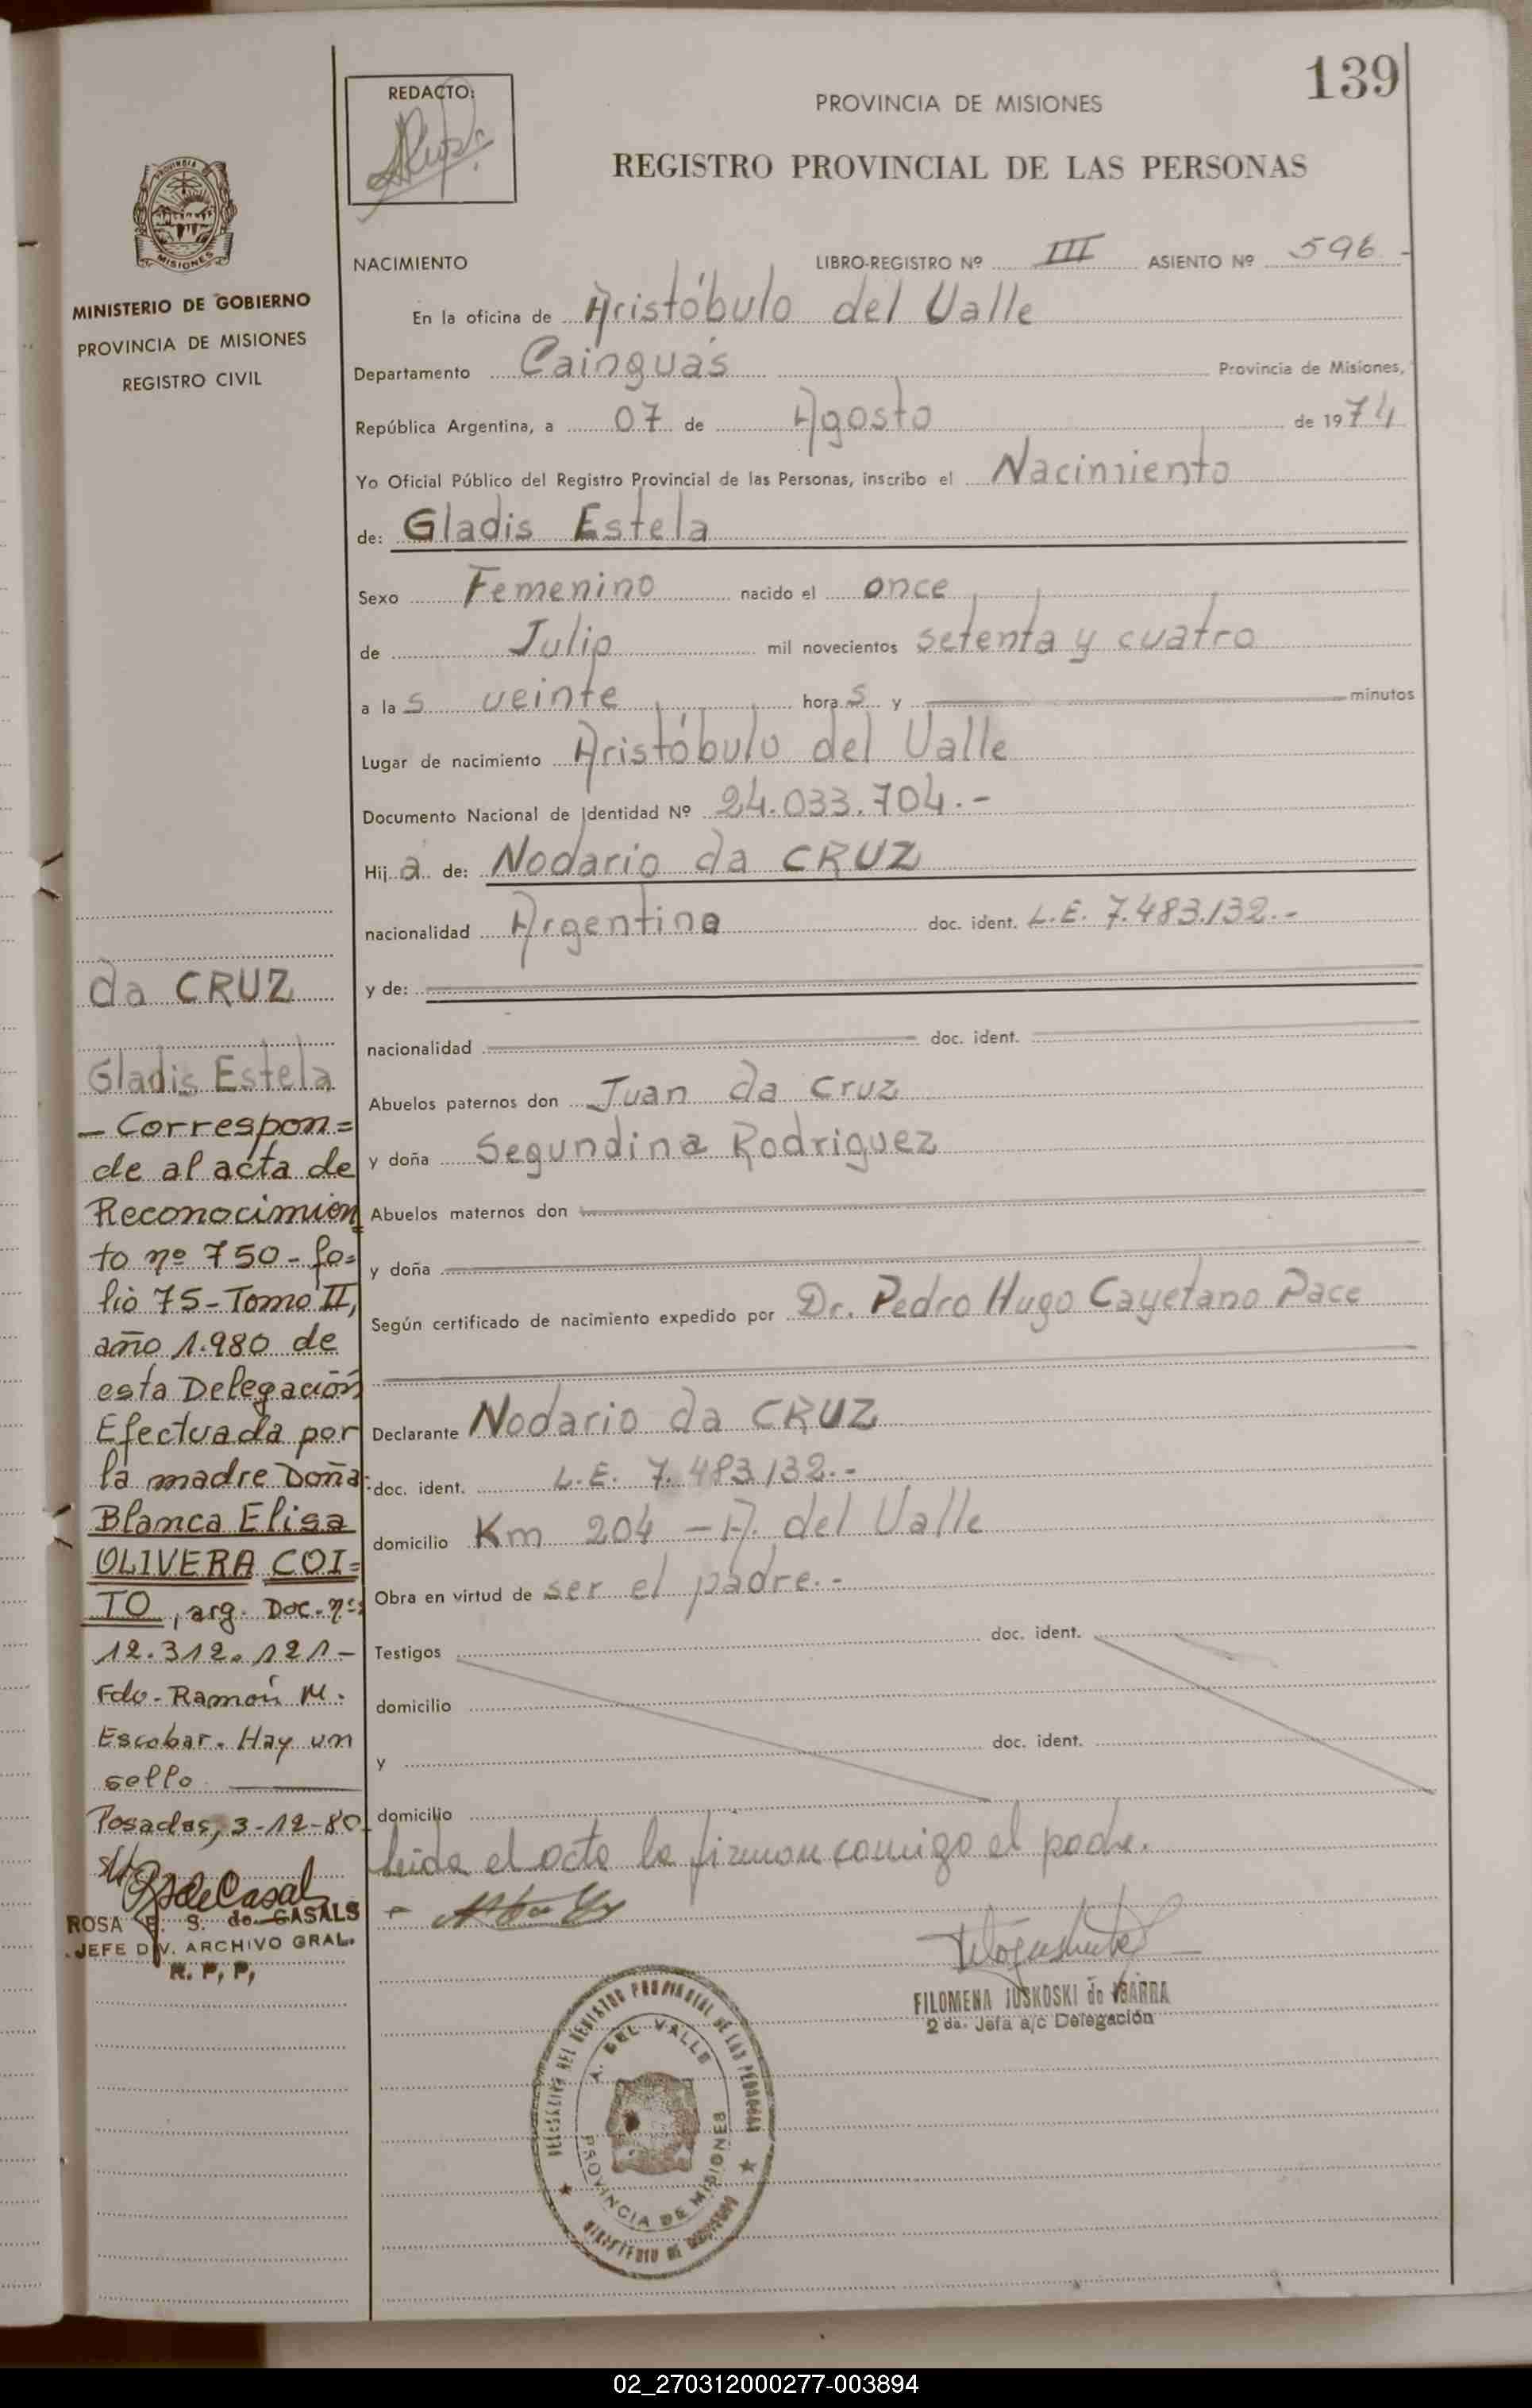 139
REDACTO:
PROVINCIA DE MISIONES
REGISTRO PROVINCIAL DE LAS PERSONAS
MISIONES
MINISTERIO DE GOBIERNO
PROVINCIA DE MISIONES
REGISTRO CIVIL
NACIMIENTO LIBRO-REGISTRO Nº III ASIENTO Nº 596
En la oficina de Aristóbulo del Valle
Departamento Cainguás Provincia de Misiones,
República Argentina, a 07 de Agosto de 1974
Yo Oficial Público del Registro Provincial de las Personas, inscribo el Nacimiento
de: Gladis Estela
Sexo Femenino nacido el once
de Julio mil novecientos setenta y cuatro
a las veinte horas y minutos
Lugar de nacimiento Aristóbulo del Valle
Documento Nacional de Identidad Nº 24.033.704.-
Hija de: Nodario da CRUZ
nacionalidad Argentina doc. ident. L.E. 7.483.132.-
y de:
nacionalidad doc. ident.
Abuelos paternos don Juan da Cruz
y doña Segundina Rodriguez
Abuelos maternos don
y doña
Según certificado de nacimiento expedido por Dr. Pedro Hugo Cayetano Pace
Declarante Nodario da CRUZ
doc. ident. L.E. 7.483.132.-
domicilio Km 204 - A. del Valle
Obra en virtud de ser el padre.-
Testigos doc. ident.
domicilio
y doc. ident.
domicilio
leida el acta la firman comigo el padre.
FILOMENA JUSKOSKI de IBARRA
2 da. Jefa a/c Delegación
A. DEL VALLE
PROVINCIA DE MISIONES
da CRUZ
Gladis Estela
- Correspon=
de al acta de
Reconocimien=
to nº 750 - fo=
lio 75 - Tomo II,
año 1.980 de
esta Delegación
Efectuada por
la madre Doña:
Blanca Elisa
OLIVERA COI=
TO, arg. Doc. nº:
12.312.121-
Fdo- Ramón M.
Escobar. Hay un
sello
Posadas, 3-12-80
ROSA E. S. de CASALS
JEFE DIV. ARCHIVO GRAL.
R. P. P.
02_270312000277-003894